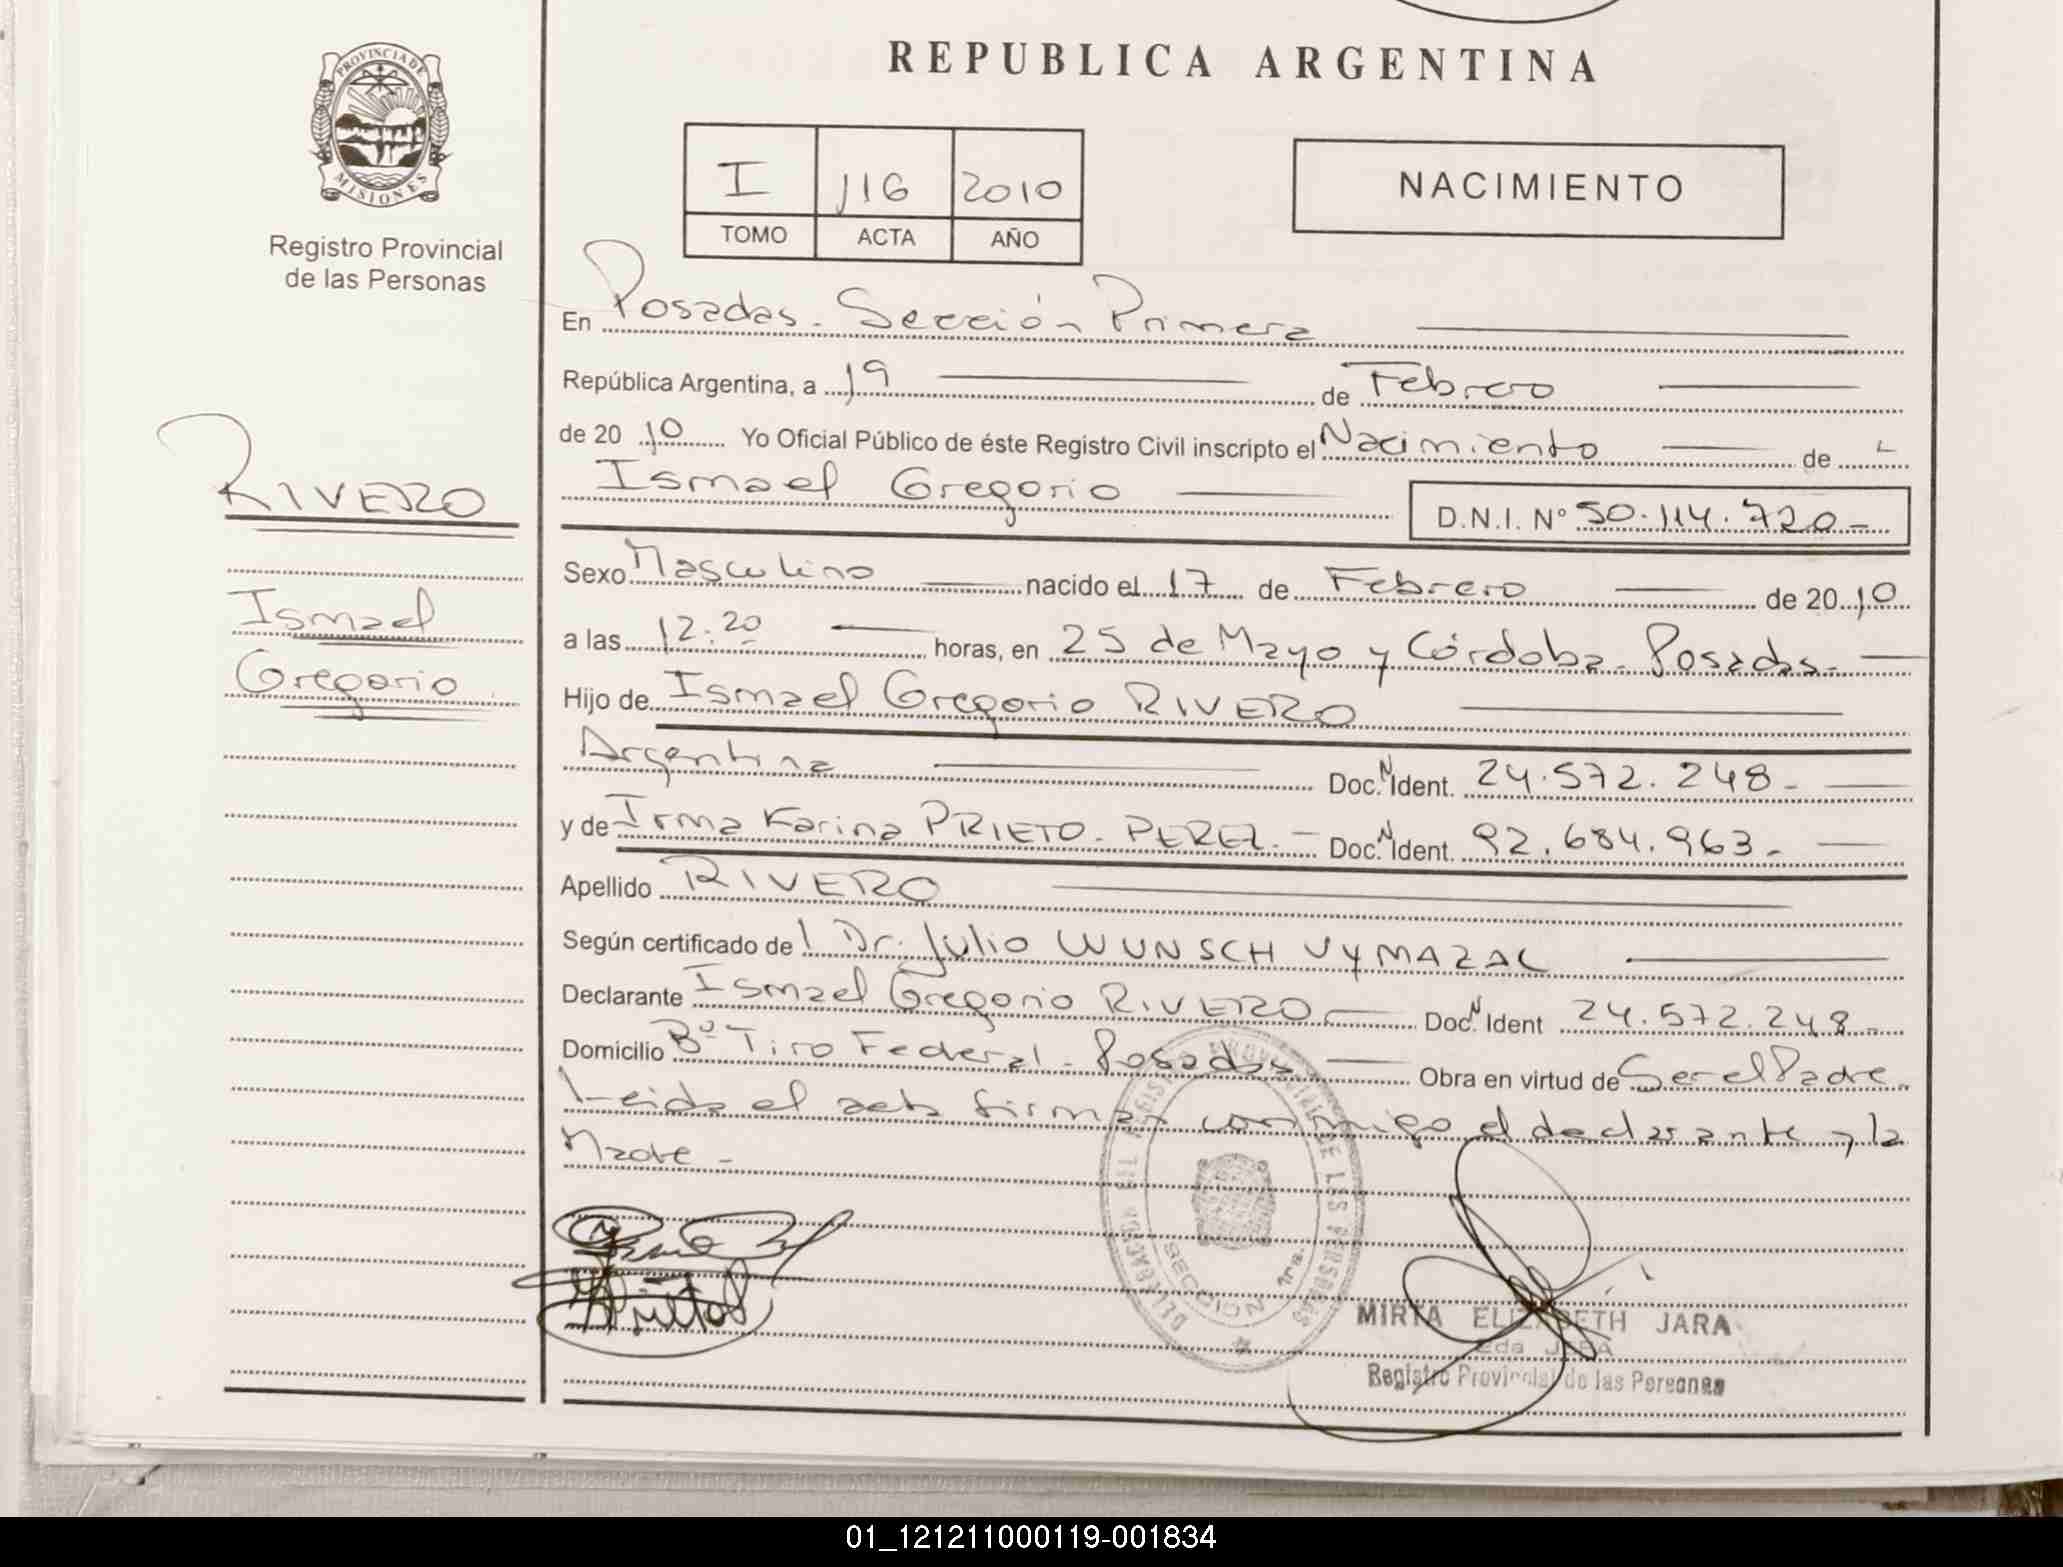 REPUBLICA ARGENTINA
PROVINCIA DE
MISIONES
Registro Provincial
de las Personas
I 116 2010
TOMO ACTA AÑO
NACIMIENTO
En Posadas. Sección Primera
República Argentina, a 19 de Febrero
de 20 10 Yo Oficial Público de éste Registro Civil inscripto el Nacimiento de
Ismael Gregorio
D.N.I. Nº 50.114.720-
RIVERO
Ismael
Gregorio
Sexo Masculino nacido el 17 de Febrero de 20 10
a las 12:20 horas, en 25 de Mayo y Córdoba. Posadas.
Hijo de Ismael Gregorio RIVERO
Argentina Doc. N Ident. 24.572.248-
y de Irma Karina PRIETO. PEREZ. Doc. N Ident. 92.684.963-
Apellido RIVERO
Según certificado de l Dr. Julio WUNSCH VYMAZAL
Declarante Ismael Gregorio RIVERO Doc. N Ident 24.572.248-
Domicilio Bº Tiro Federal. Posadas Obra en virtud de Ser el Padre
Leida el acta firman conmigo el declarante y la
Madre -
DELEGACION DEL REGISTRO PROVINCIAL DE LAS PERSONAS
SECCION 1ra.
MIRTA ELIZABETH JARA
Registro Provincial de las Personas
01_121211000119-001834